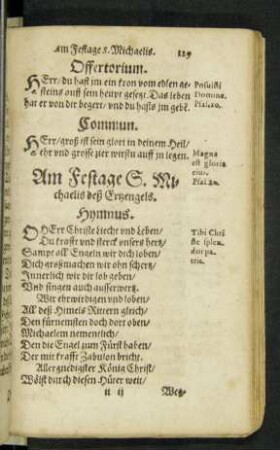 am Festage S. Michaelis. 129
Offertorium.
HErr/ du hast jm ein kron vom edlen ge-
steins auff sein heupt gesetzt. Das leben
hat er von dir begert/ vnd du hasts jm gebē.
Posuisti
Domine.
Psal. 20.
Commun.
HErr/ groß ist sein glori in deinem Heil/
ehr vnd grosse zier wirstu auff jn legen.
Magna
est gloria
eius.
Psal. 20.
Am Festage S. Mi-
chaelis deß Ertzengels.
Hymnus.
OHErr Christe Liecht vnd Leben/
Du krafft vnd sterck vnsers hertz/
Sampt all Engeln wir dich loben/
Dich großmachen wir ohn schertz/
Innerlich wir dir lob geben/
Vnd singen auch ausserwertz.
Tibi Chri
ste splen
dor pa-
tris.
Wir ehrwirdigen vnd loben/
All deß Himels Rittern gleich/
Den fürnemsten doch dort oben/
Michaelem nemenlich/
Den die Engel zum Fürst haben/
Der mit krafft Zabulon bricht.
Allergnedigster König Christ/
Wöist durch diesen Hüter weit/
ij Weg-